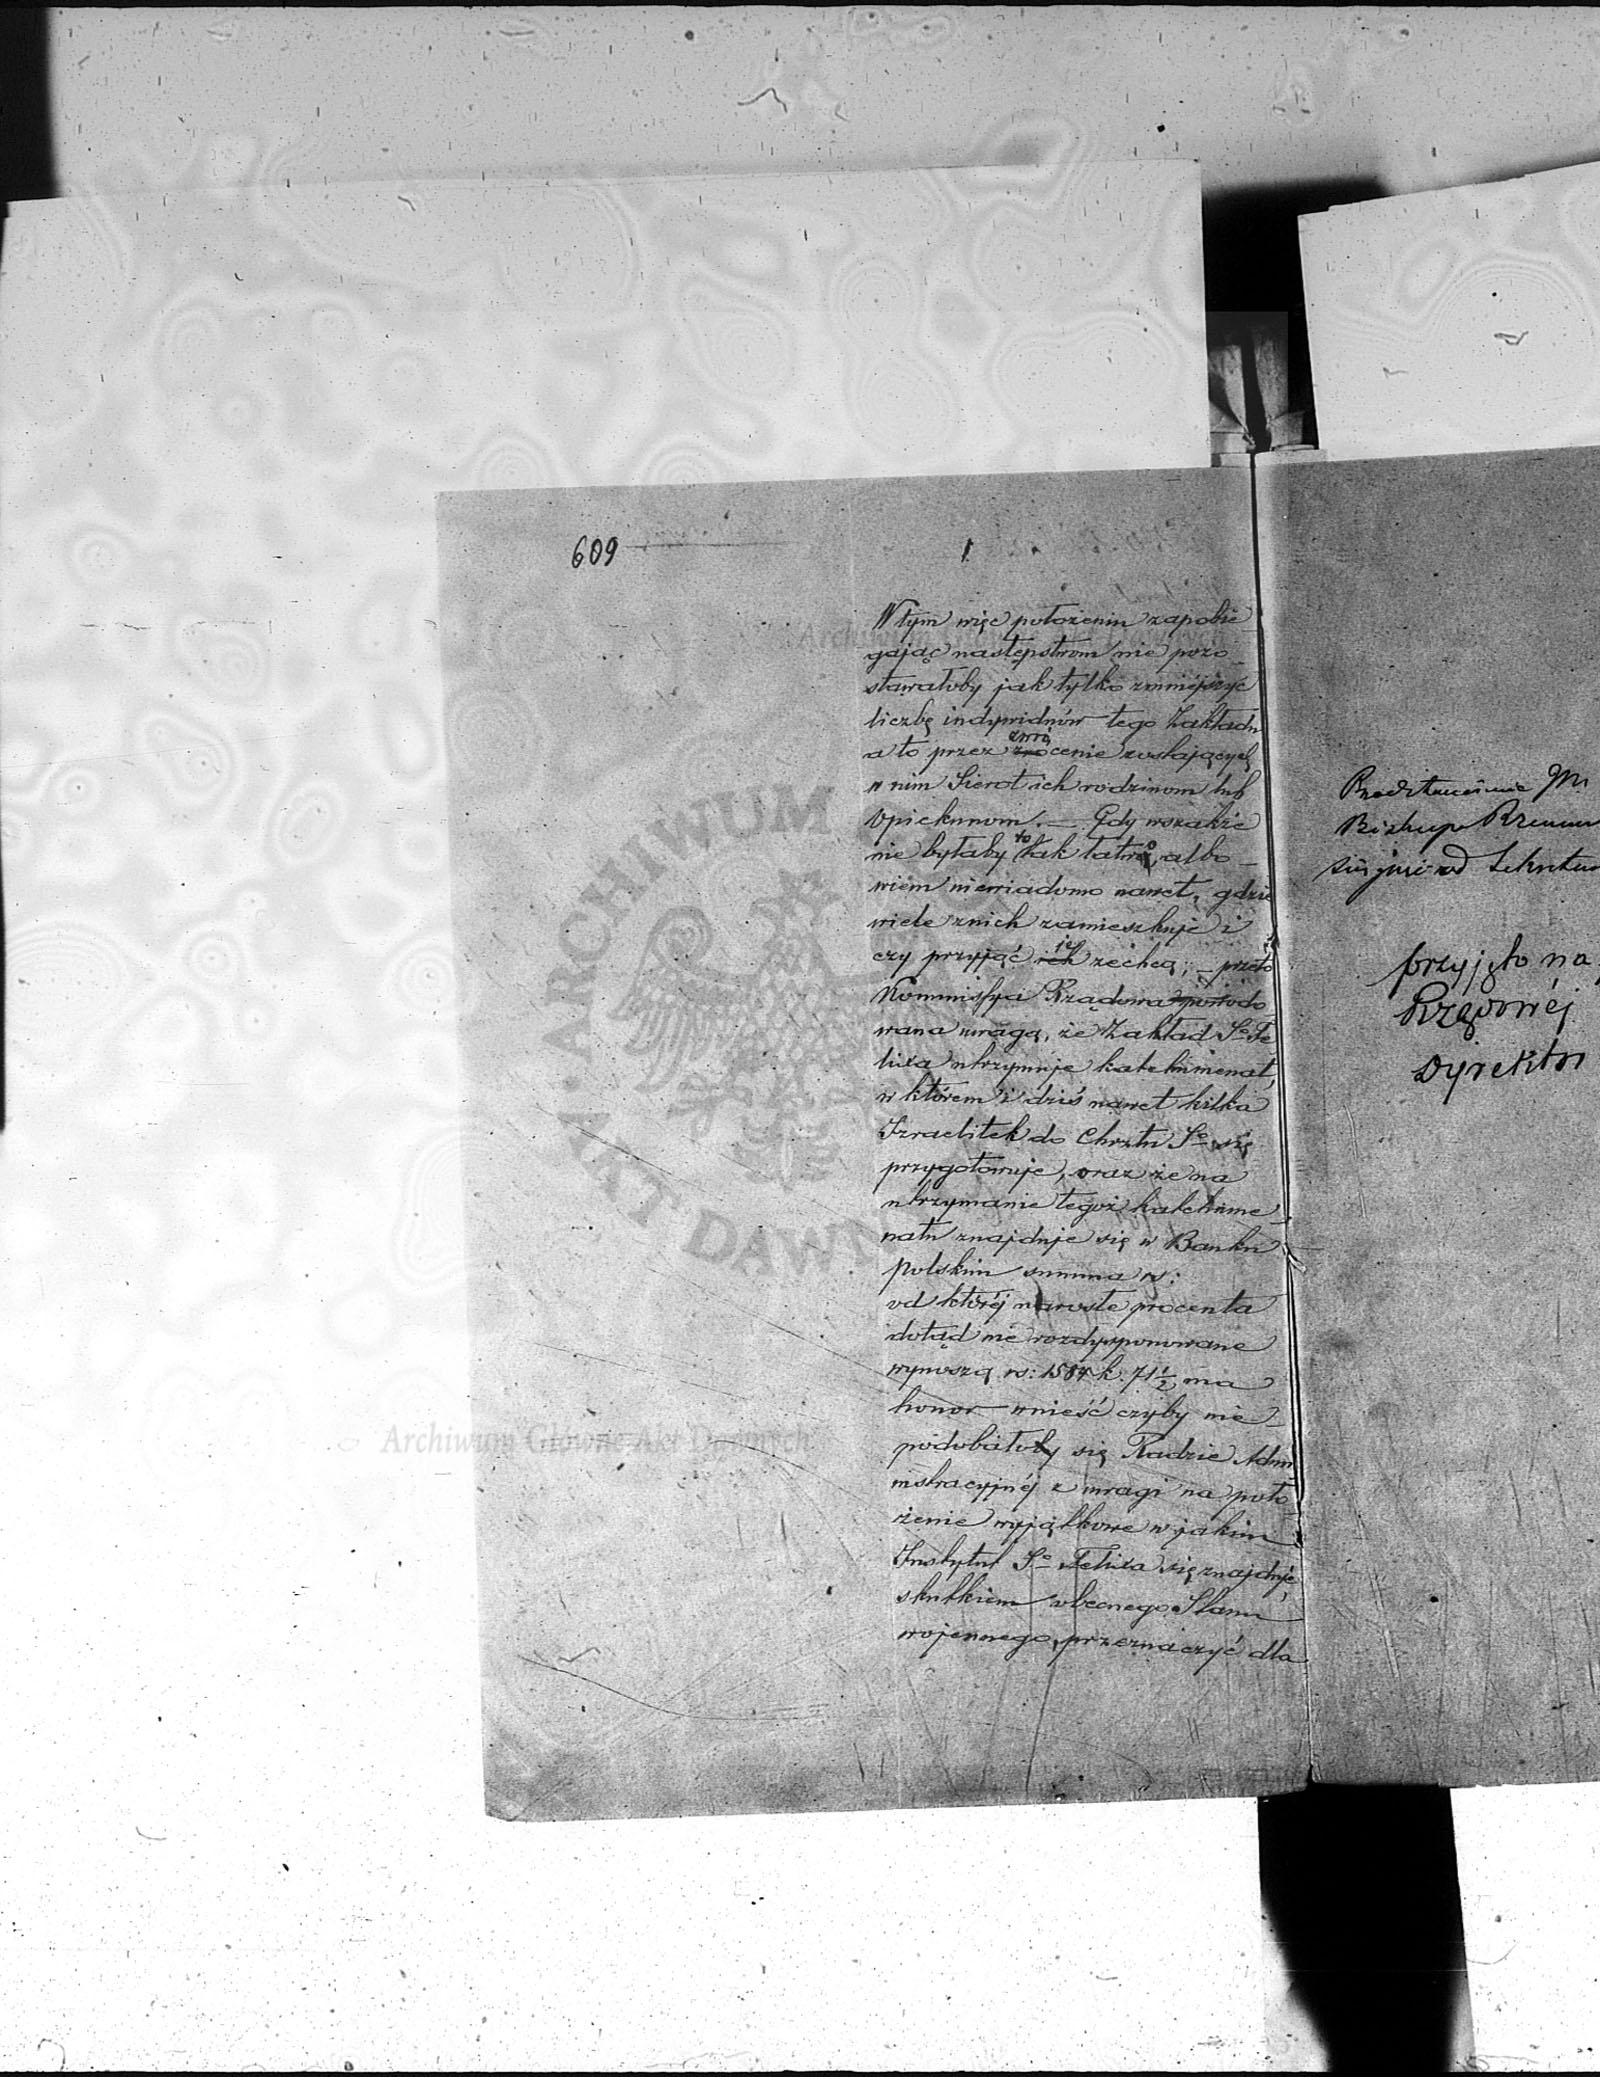 609
W tym więc położeniu zapobie_
gając następstwom nie pozo_
stawałoby jak tylko zmniejszyć
liczbę indywiduów tego Zakładu
a to przez zwrócenie zostających
w nim Sierot ich rodzinom lub
Opiekunom. — Gdy wszakże
nie byłaby to tak łatwo, albo_
wiem niewiadomo nawet, gdzie
wiele z nich zamieszkuje i
czy przyjąć ich je zechcą; — przeto
Kommissya Rządowa powodo
wana uwagą, że Zakład Sº Fe
lixa utrzymuje katechumenat,
w którem i dziś nawet kilka
Izraelitek do Chrztu Sº się
przygotowuje, oraz że na
utrzymanie tegoż katechume_
natu znajduje się w Banku
Polskim summa rs:
od której narosłe procenta
dotąd nie rozdysponowane
wynoszą rs: 1584 k. 71½ ma
honor wnieść czyby nie_
podobałoby się Radzie Admi
nistracyjnéj z uwagi na poło_
żenie wyjątkowe w jakim
Instytut Sº Felixa się znajduje,
skutkiem obecnego Stanu
wojennego, przeznaczyć dla
Biskupa
przyjęto na
Dyrektor
Archiwum Główne Akt Dawnych
Archiwum Główne Akt Dawnych
ARCHIWUM
AKT DAWN